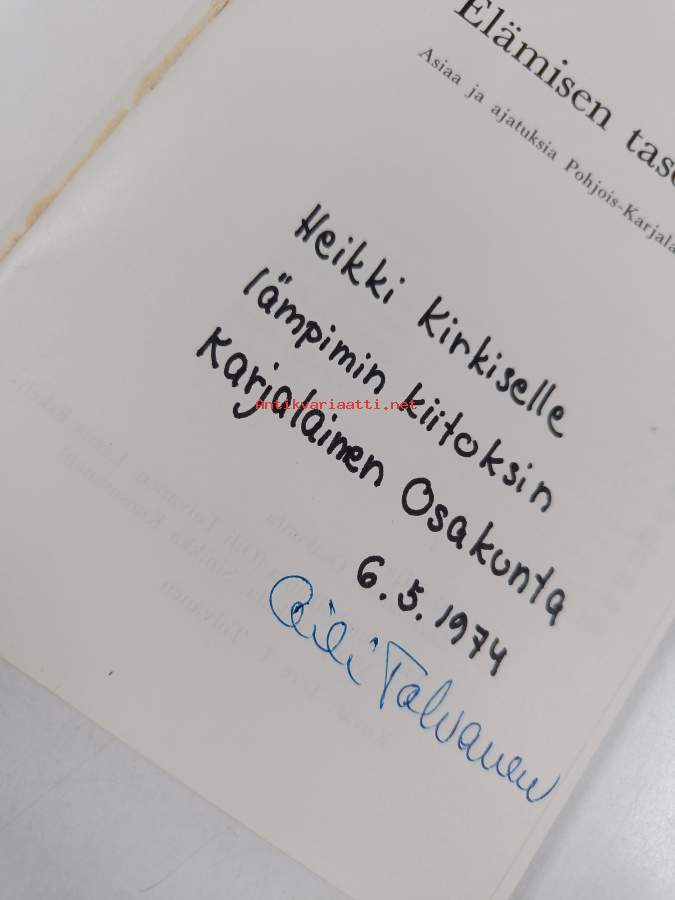 Elämisen
Asiaa ja ajatuksia Pohjois-Karjala
Heikki Kirkiselle
lämpimin kiitoksin
Karjalainen Osakunta
6.5.1974
Aili Tolvanen
Antikvariaatti.net